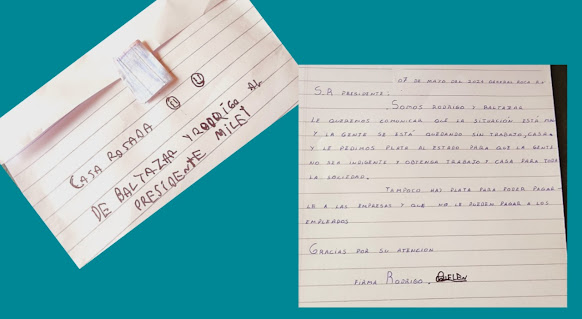 CASA ROSADA
DE BALTAZAR Y RODRIGO AL
PRESIDENTE MILEI
07 DE MAYO DEL 2024 GENERAL ROCA R.N
S.R PRESIDENTE:
SOMOS RODRIGO Y BALTAZAR
LE QUEREMOS COMUNICAR QUE LA SITUACIÓN ESTÁ MAL
Y LA GENTE SE ESTÁ QUEDANDO SIN TRABAJO, CASA
Y LE PEDIMOS PLATA AL ESTADO PARA QUE LA GENTE
NO SEA INDIGENTE Y OBTENGA TRABAJO Y CASA PARA TODA
LA SOCIEDAD.
TAMPOCO HAY PLATA PARA PODER PAGAR
LE A LAS EMPRESAS Y QUE NO LE PUEDEN PAGAR A LOS
EMPLEADOS
GRACIAS POR SU ATENCION
FIRMA RODRIGO.